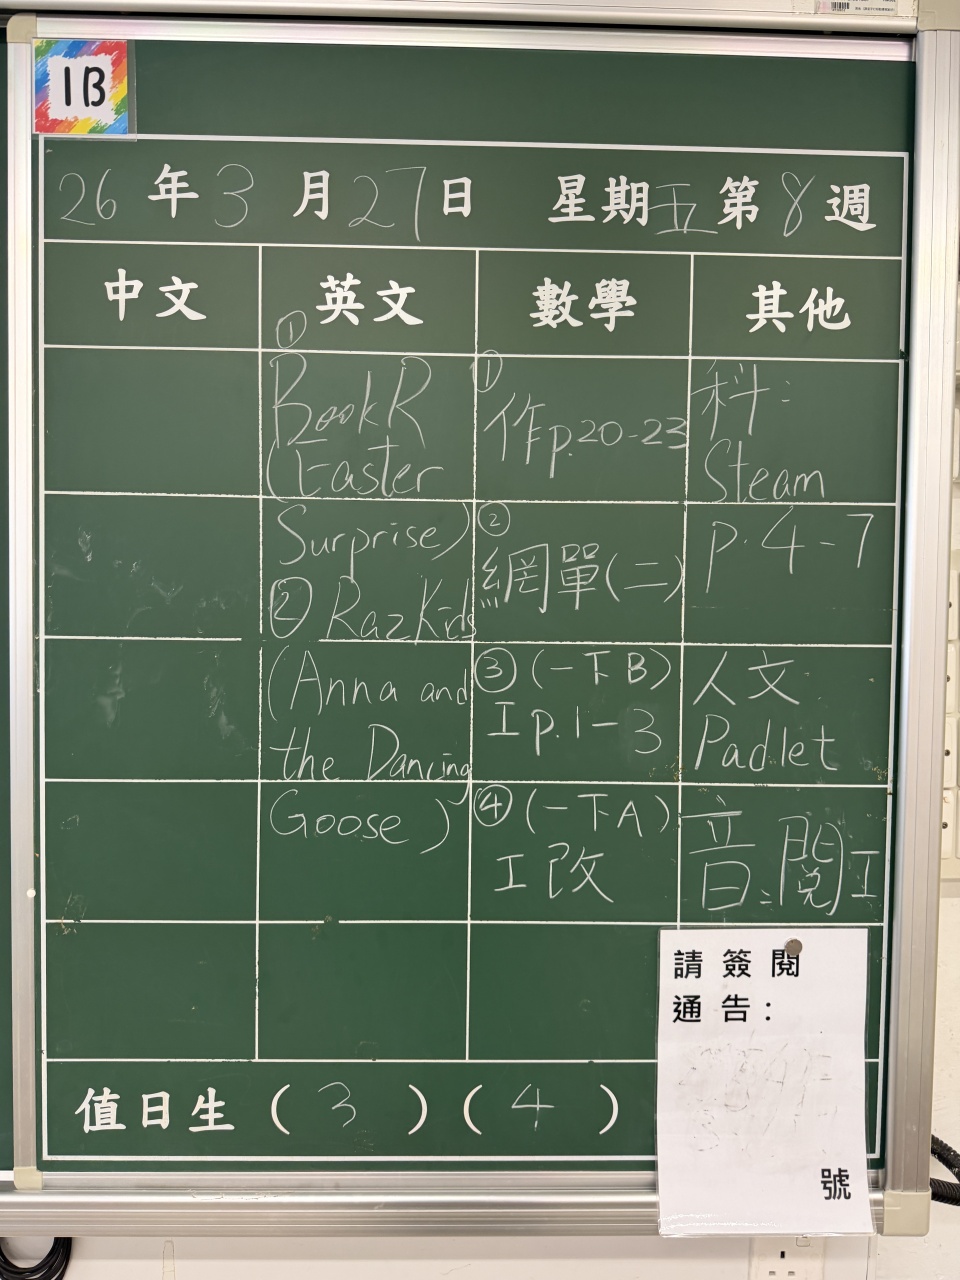 1B
26年3月27日 星期五第8週
中文 英文 數學 其他
①
BookR
(Easter
Surprise)
② RazKids
(Anna and
the Dancing
Goose)
①
作p.20-23
②
網單(二)
③(一下B)
工p.1-3
④(一下A)
工改
科:
Steam
p.4-7
人文
Padlet
音:閱工
請簽閱
通告:
號
值日生(3)(4)